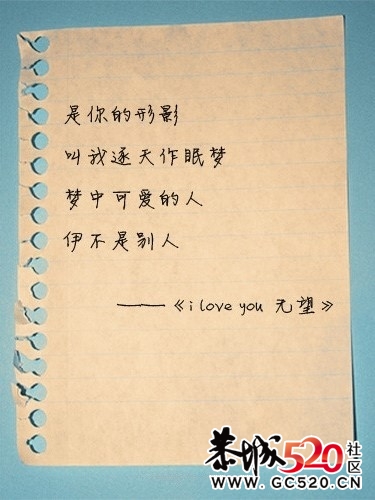 是你的形影
叫我逐天作眠梦
梦中可爱的人
伊不是别人
——《i love you 无望》
恭城520社区
WWW.GC520.CN